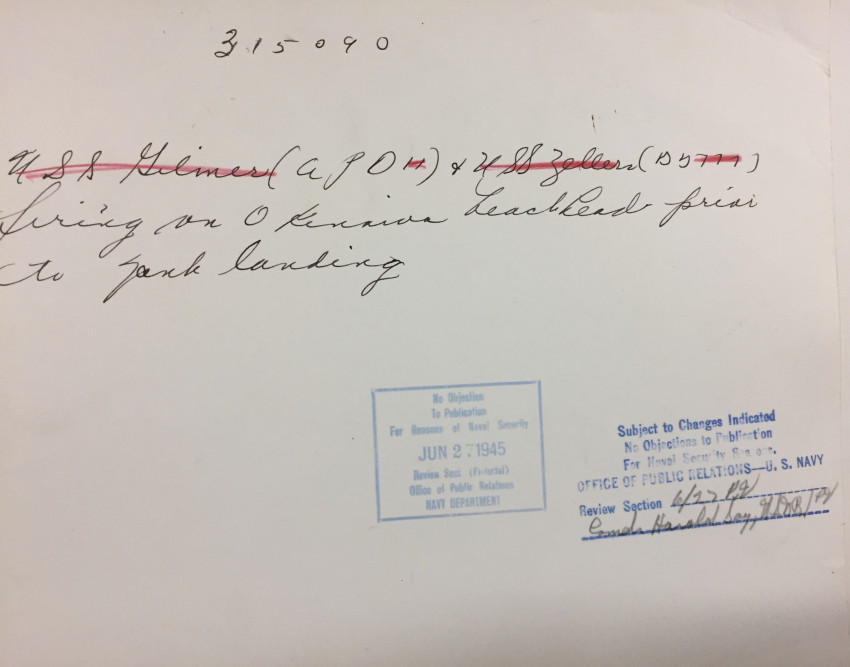 315090
USS Gilmer (APD 11) & USS Zellers (DD 777)
firing on Okinawa beachhead prior
to Yank landing
No Objection
To Publication
For Reasons of Naval Security
JUN 27 1945
Review Sect (Pictorial)
Office of Public Relations
NAVY DEPARTMENT
Subject to Changes Indicated
No Objections to Publication
For Naval Security Reasons.
OFFICE OF PUBLIC RELATIONS—U. S. NAVY
Review Section 6/27
Comdr Harold Say, USNR